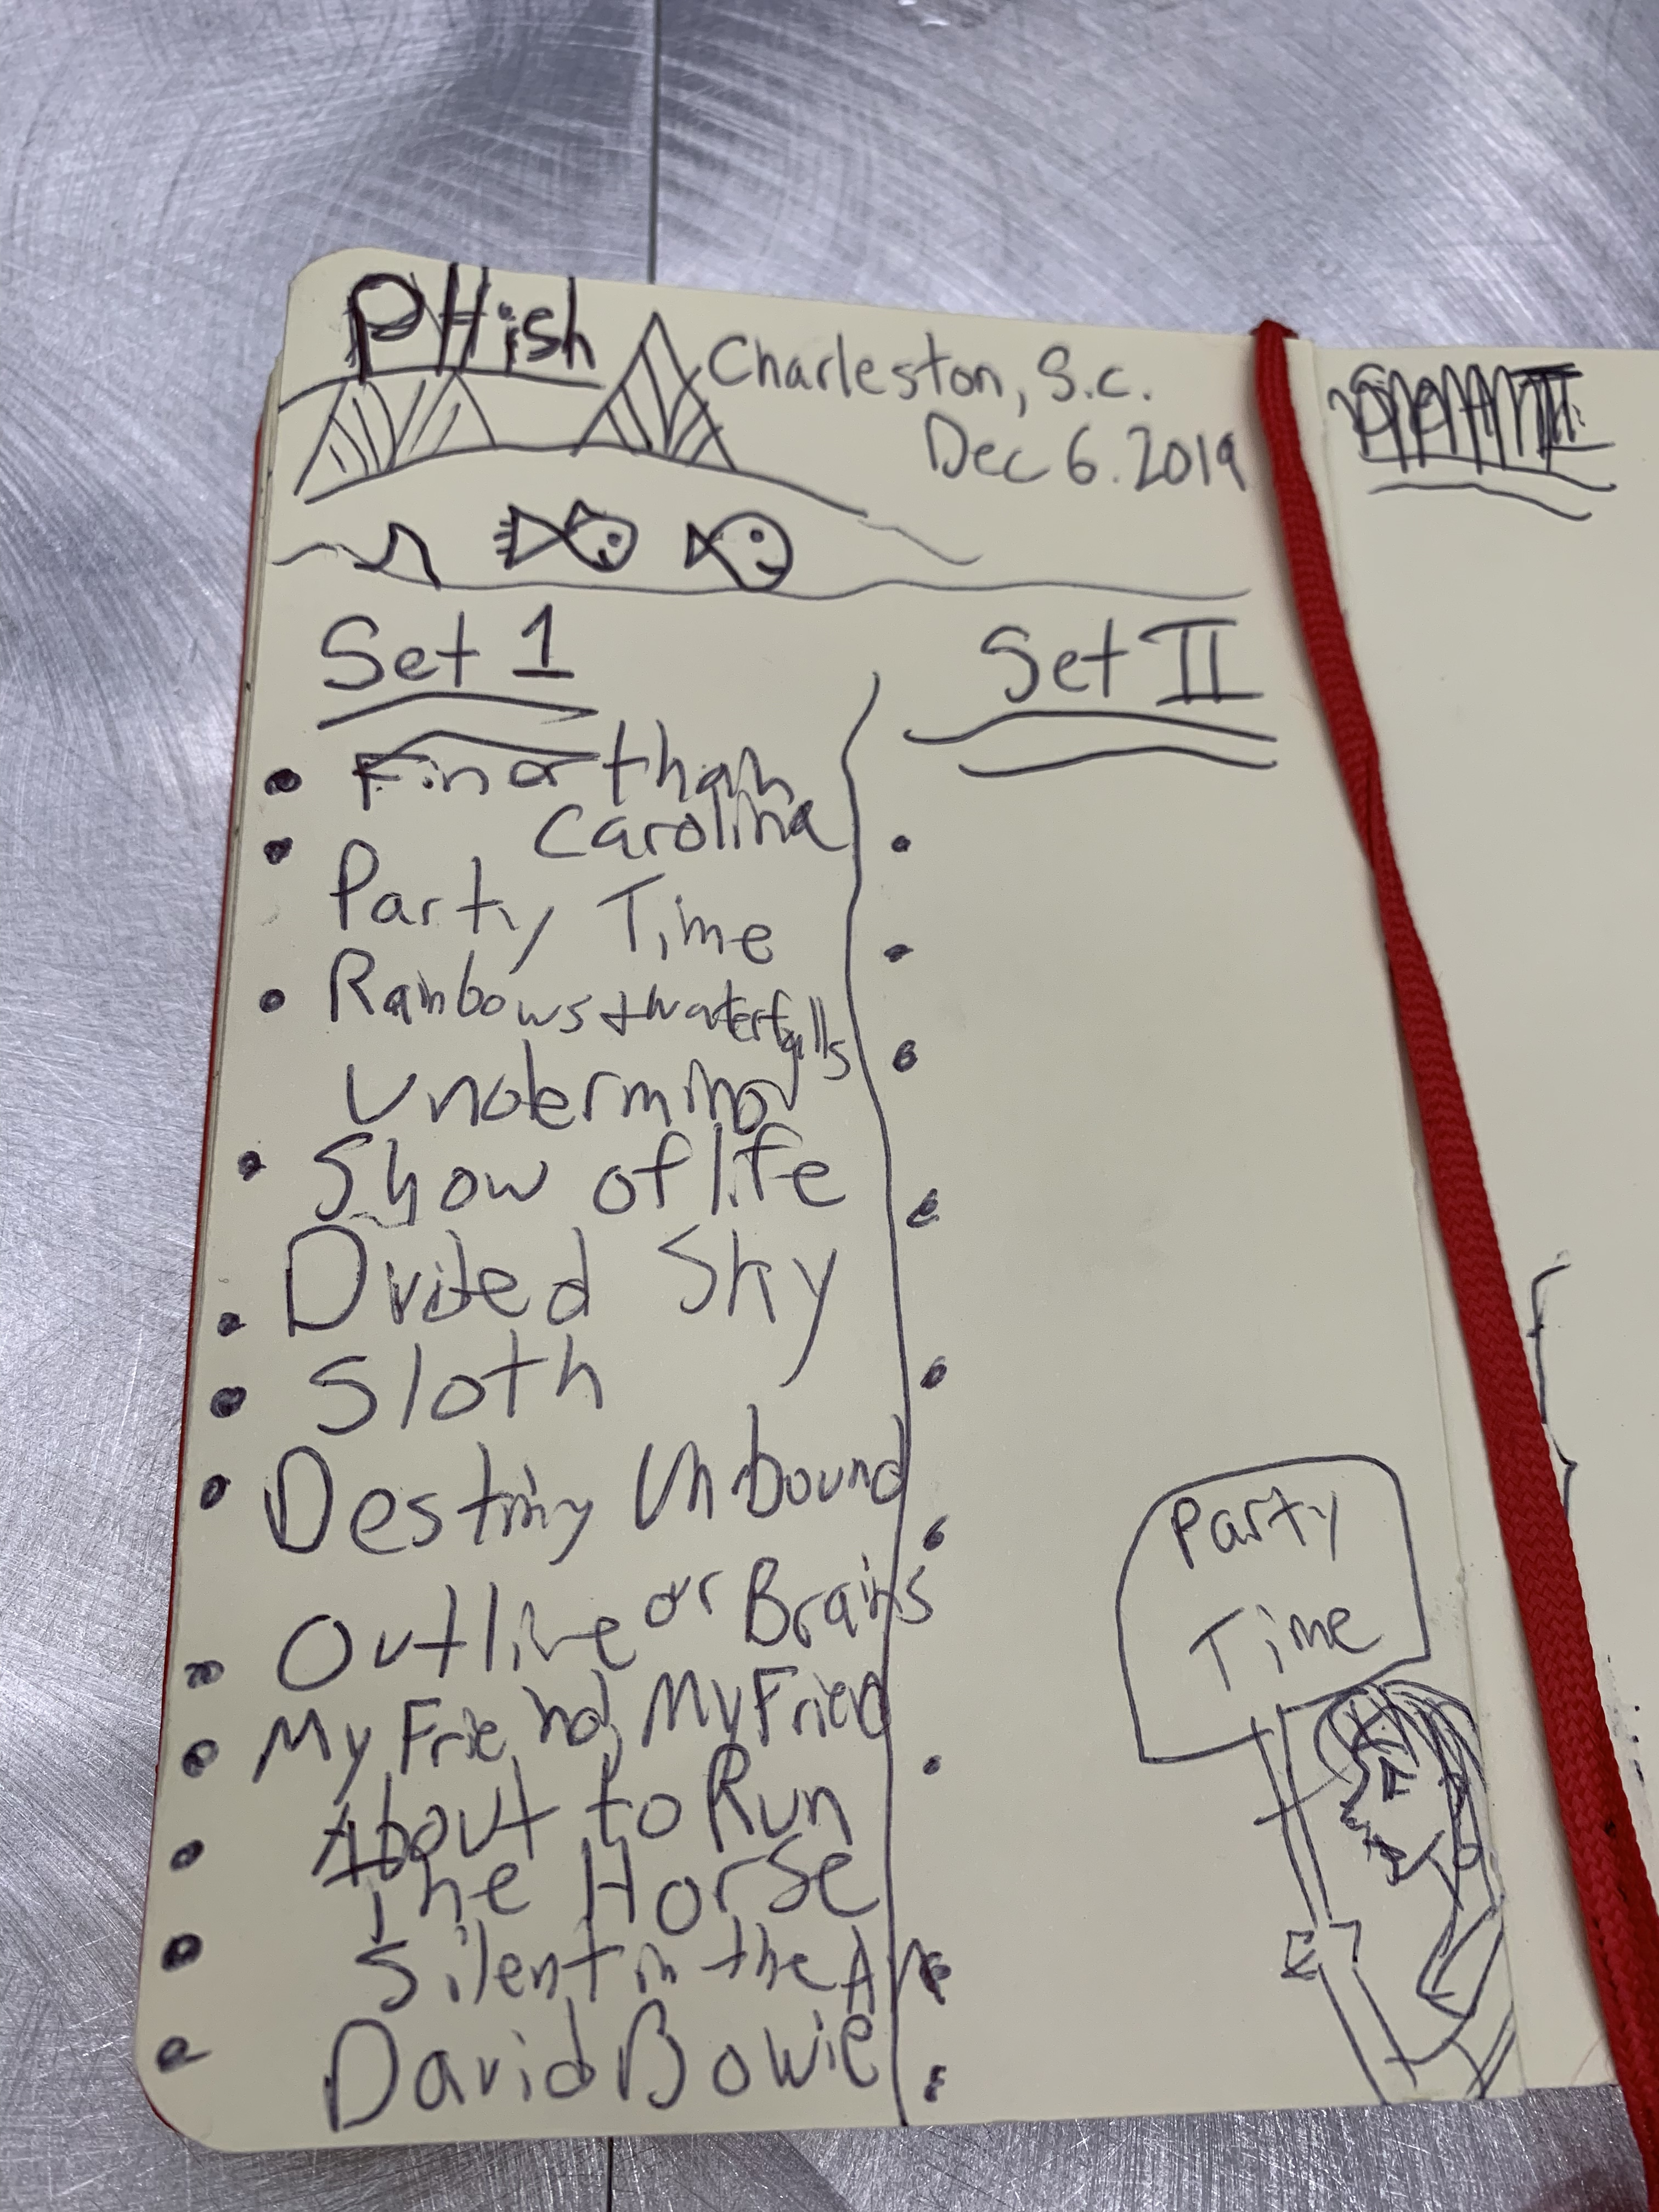 PHish
Charleston, S.C.
Dec 6. 2019
Set 1
Finer than
Carolina
Party Time
Rainbows + Waterfalls
Undermind
Show of life
Divided Sky
Sloth
Destiny Unbound
Outlive or Brains
My Friend, My Friend
About to Run
The Horse
Silent in the A
David Bowie
Set II
Party
Time